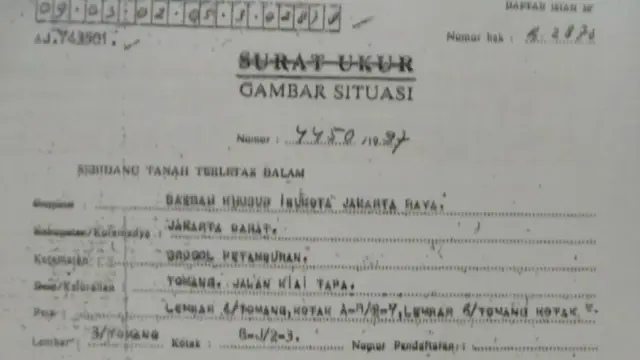 09.03.02.05.3.02878
DAFTAR ISIAN
AJ.743501.
Nomor hak : B. 2878
SURAT UKUR
GAMBAR SITUASI
Nomor : 4450 /1987
SEBIDANG TANAH TERLETAK DALAM
DAERAH KHUSUS IBUKOTA JAKARTA RAYA.
Kabupaten/Kotamadya : JAKARTA BARAT.
Kecamatan : GROGOL PETAMBURAN.
Desa/Kelurahan : TOMANG. JALAN KIAI TAPA.
Peta : LEMBAR 6/TOMANG, KOTAK LEMBAR 6/TOMANG KOTAK
Lembar : 3/TOMANG Kotak : Nomor Pendaftaran :